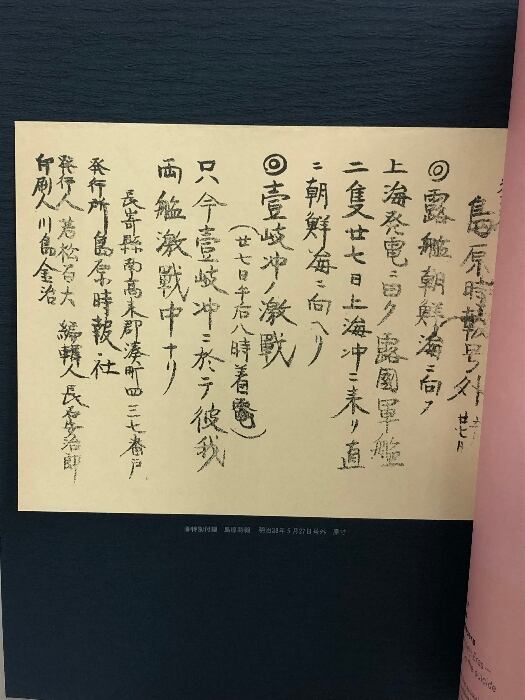 島原時報号外
廿七日
◎露艦朝鮮海ニ向フ
上海発電ニ曰ク露國軍艦
二隻廿七日上海冲ニ来リ直
ニ朝鮮海ニ向ヘリ
◎壹岐冲ノ激戰
(廿七日午后八時着電)
只今壹岐冲ニ於テ彼我
両艦激戰中ナリ
長嵜縣南高来郡湊町四三七番戸
発行所島原時報社
発行人 若松百大 編輯人 長
印刷人川島金治
特製付録 島原時報 明治38年5月27日号外 原寸